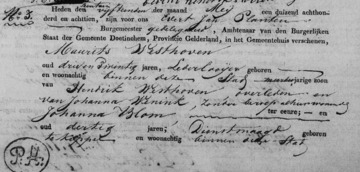 Heden den der maand Mei een duizend achthon-
No. 3.
derd en achttien, zijn voor ons Evert Jan Planten
Burgemeester Ambtenaar van den Burgerlijken
Staat der Gemeente Doetinchem, Provincie Gelderland, in het Gemeentehuis verschenen,
Maurits Westhoven
oud drie en twintig jaren, geboren
en woonachtig binnen deze Stad zoon
van Hendrik Westhoven overleden en
van Johanna zonder beroep alhier woonende
ter eenre; en
Johanna Blom
oud dertig jaren, Dienstmaagd geboren
te en woonachtig binnen deze Stad
P.H.